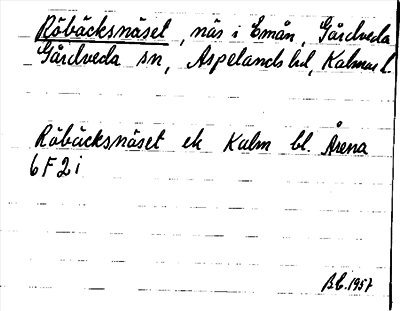 Röbäcksnäset, näs i Emån, Gårdveda
Gårdveda sn, Aspelands hd, Kalmar l.
Röbäcksnäset ek Kalm bl. Årena
6 F 2 i
1957